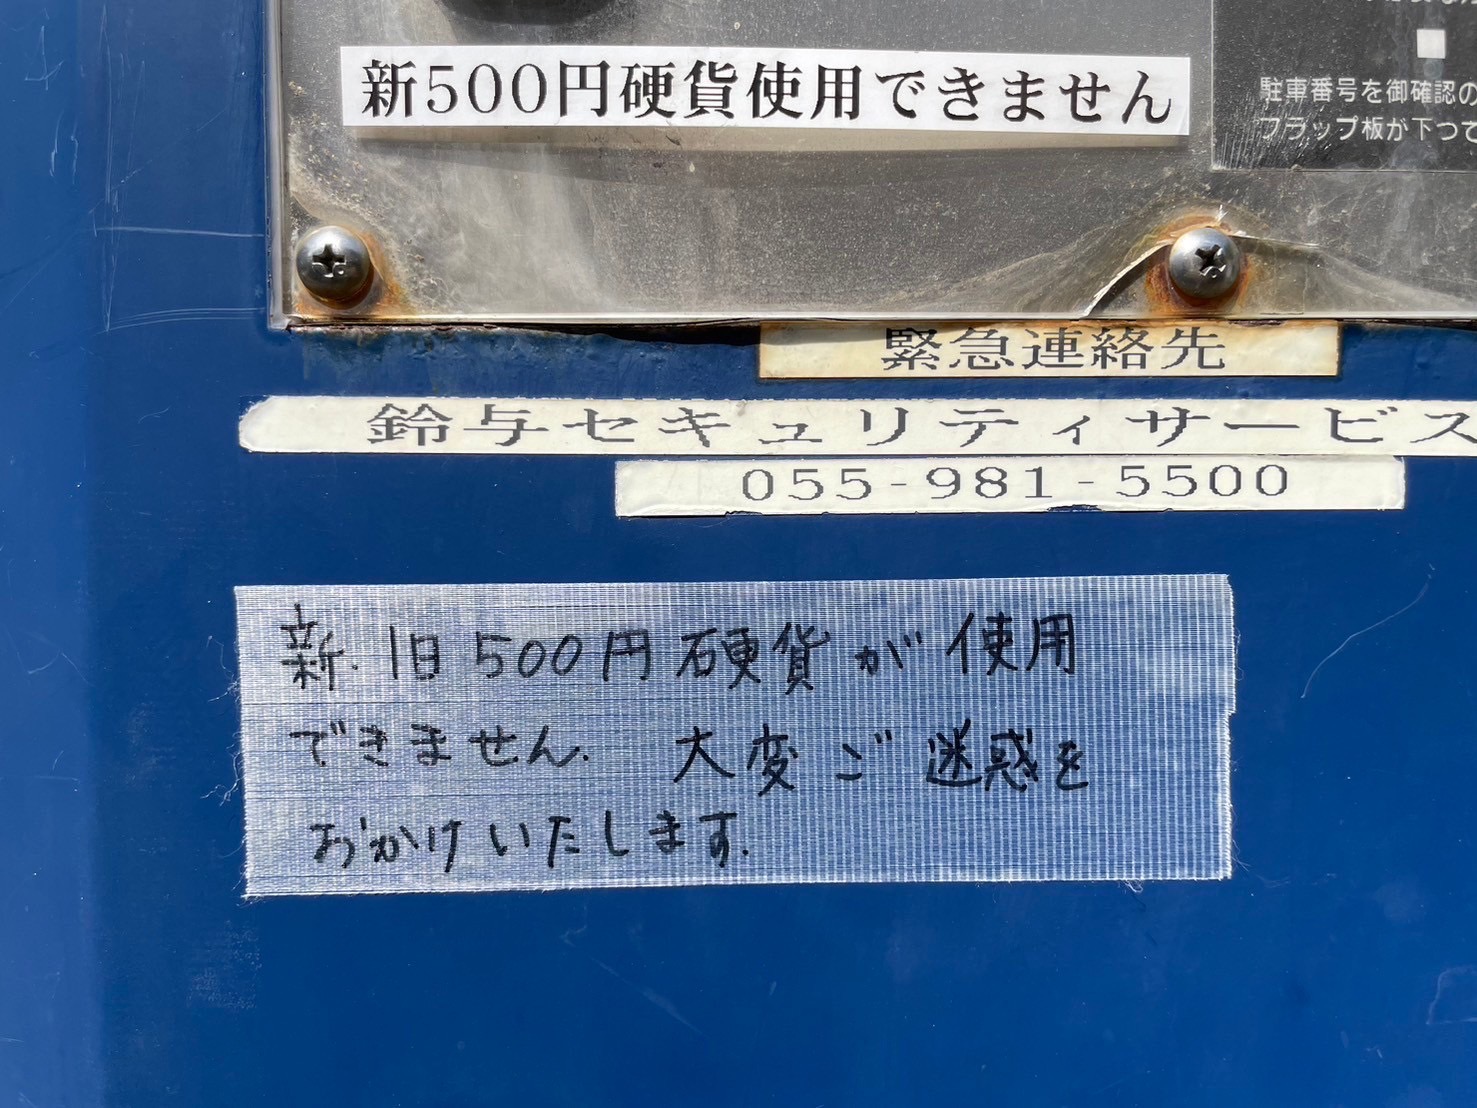 新500円硬貨使用できません
駐車番号を御確認の
フラップ板が下って
緊急連絡先
鈴与セキュリティサービス
055-981-5500
新.旧500円硬貨が使用
できません. 大変ご迷惑を
おかけいたします.